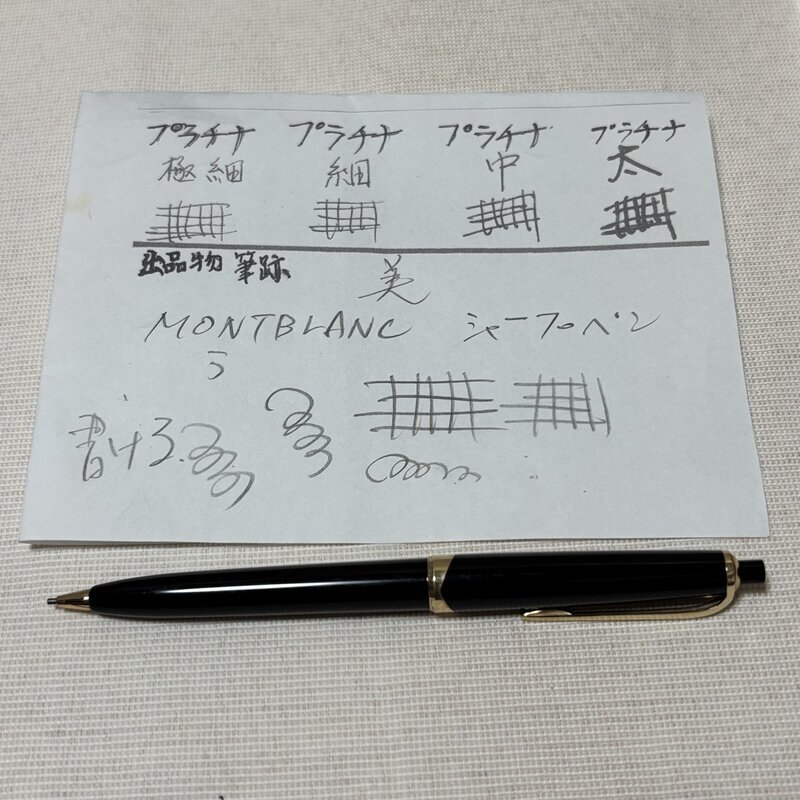 プラチナ プラチナ プラチナ プラチナ
極細 細 中 太
出品物 筆跡 美
MONTBLANC シャープペン
う
書ける.